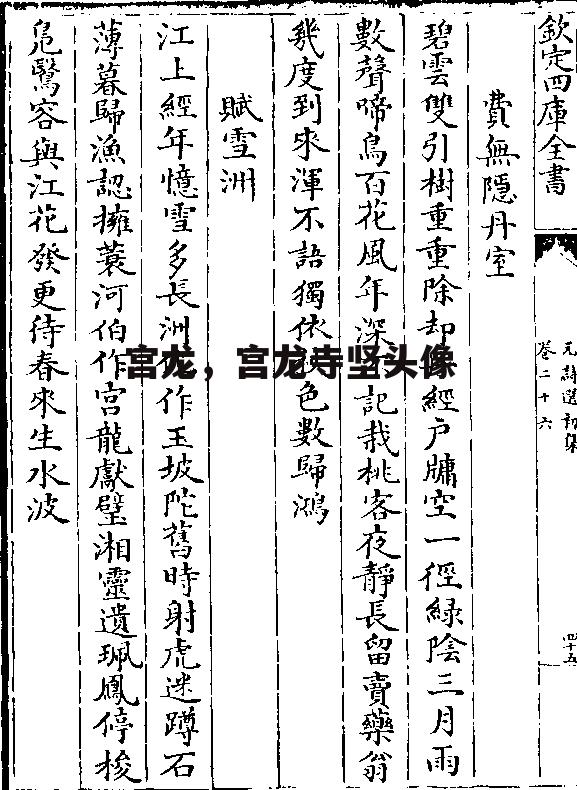 欽定四庫全書
元詩選初集
卷二十六
四十五
費無隱丹室
碧雲雙引樹重重除却經户牖空一徑緑陰三月雨
數聲啼鳥百花風年深記栽桃客夜靜長留賣藥翁
幾度到來渾不語獨依色數歸鴻
賦雪洲
江上經年憶雪多長洲作玉坡陀舊時射虎迷蹲石
薄暮歸漁認擁蓑河伯作宮龍獻璧湘靈遺珮鳳停梭
鳬鷖容與江花發更待春來生水波
宫龙，宫龙寺坚头像